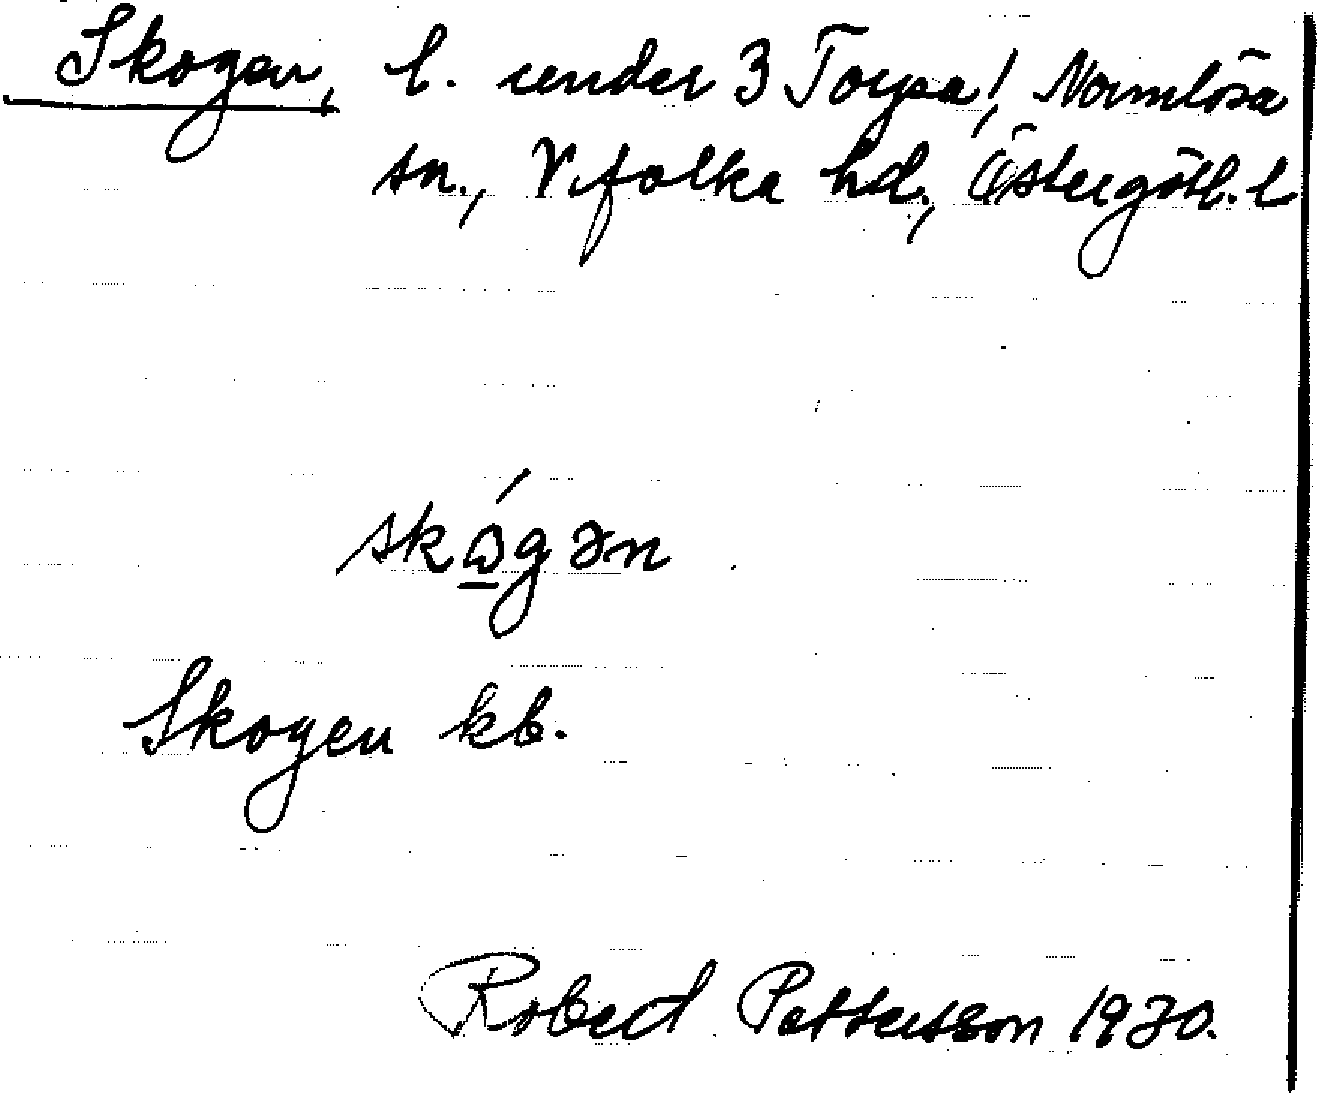 Skogen, l. under 3 Torpa!, Normlösa
sn., Vifolka hd., Östergötl. l
skógən
Skogen kb.
Robert Pettersson 1930.